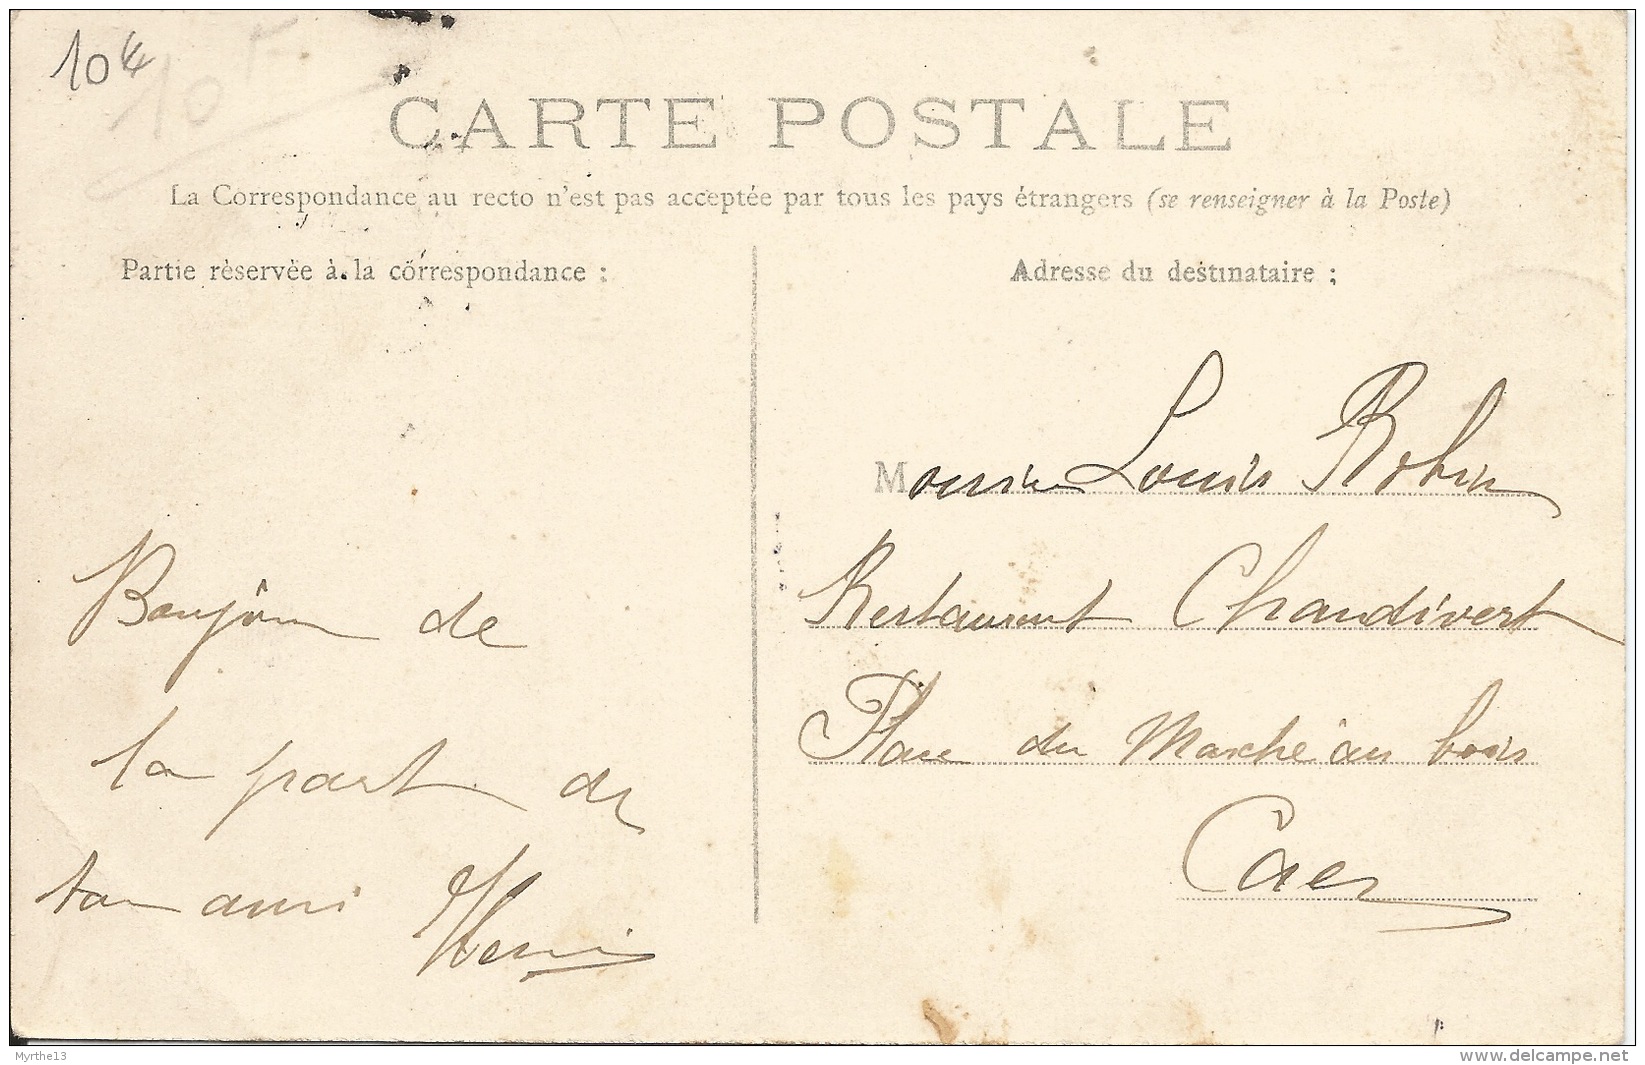 10 €
10 F
CARTE POSTALE
La Correspondance au recto n'est pas acceptée par tous les pays étrangers (se renseigner à la Poste)
Partie réservée à la correspondance :
Adresse du destinataire :
Bonjour de
la part de
ton ami Henri
Monsieur Louis Robin
Restaurant Chandivert
Place du Marché au bois
Caen
Myrthe13
www.delcampe.net